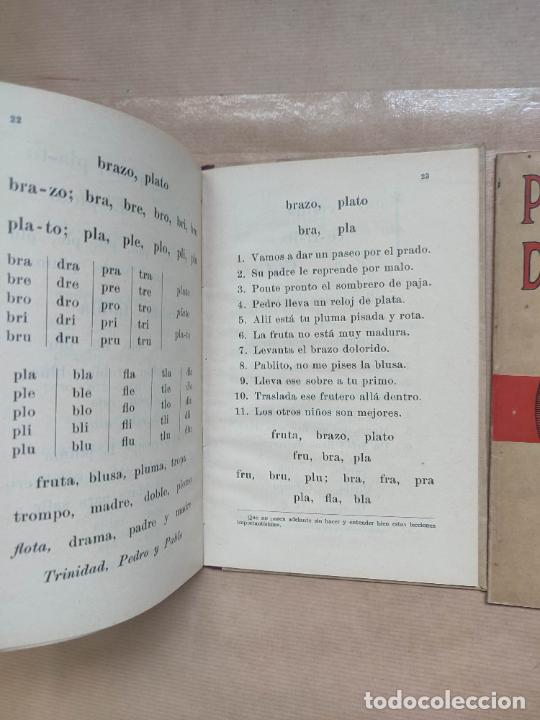 22
brazo, plato
bra-zo; bra, bre, bro, bri, bru
pla-to; pla, ple, plo, pli, plu
bra dra pra tra
bre dre pre tre plato
bro dro pro tro
bri dri pri tri pla-to
bru dru pru tru
pla bla fla tla
ple ble fle tle
plo blo flo tlo
pli bli fli tli
plu blu flu tlu
fruta, blusa, pluma, tropa
trompo, madre, doble, plano
flota, drama, padre y madre
Trinidad, Pedro y Pablo
23
brazo, plato
bra, pla
1. Vamos a dar un paseo por el prado.
2. Su padre le reprende por malo.
3. Ponte pronto el sombrero de paja.
4. Pedro lleva un reloj de plata.
5. Allí está tu pluma pisada y rota.
6. La fruta no está muy madura.
7. Levanta el brazo dolorido.
8. Pablito, no me pises la blusa.
9. Lleva ese sobre a tu primo.
10. Traslada ese frutero allá dentro.
11. Los otros niños son mejores.
fruta, brazo, plato
fru, bra, pla
fru, bru, plu; bra, fra, pra
pla, fla, bla
Que no pasen adelante sin hacer y entender bien estas lecciones
importantísimas.
P
D
todocoleccion.net